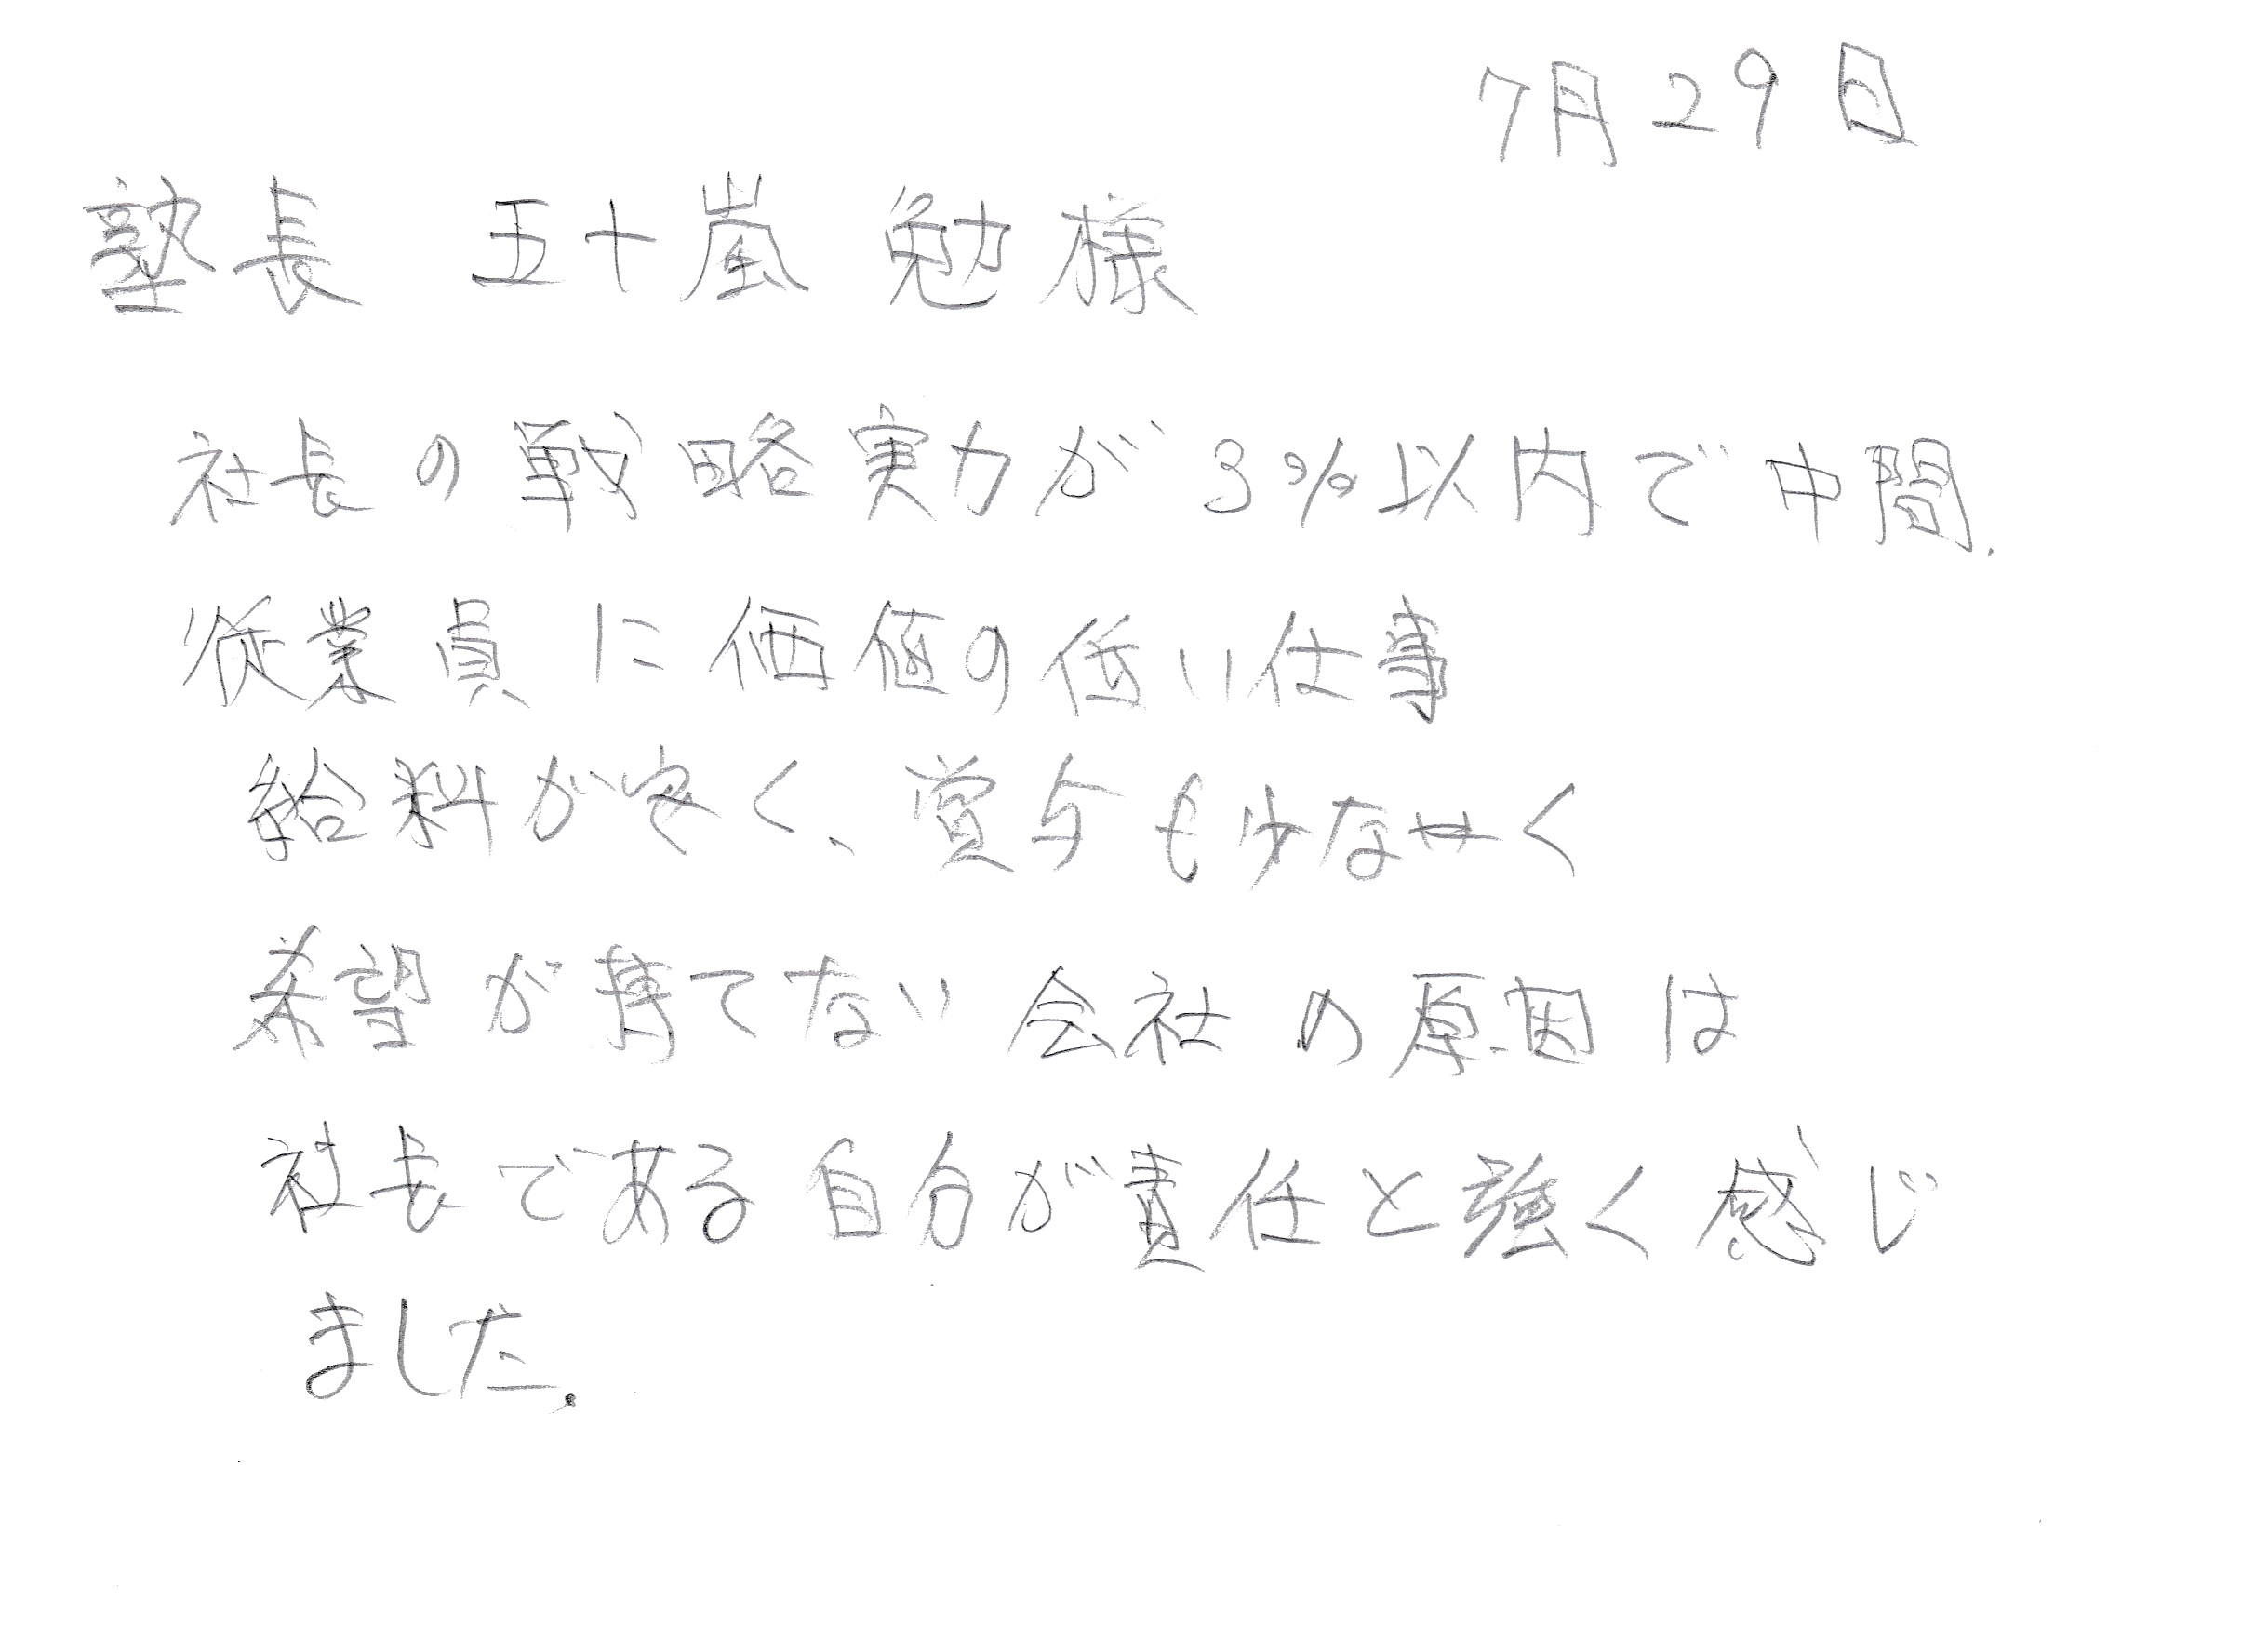 7月29日
塾長 五十嵐 勉様
社長の戦略実力が3%以内で中間.
従業員に価値の低い仕事
給料が安く、賞与も少なく
希望が持てない会社の原因は
社長である自分が責任と強く感じ
ました。